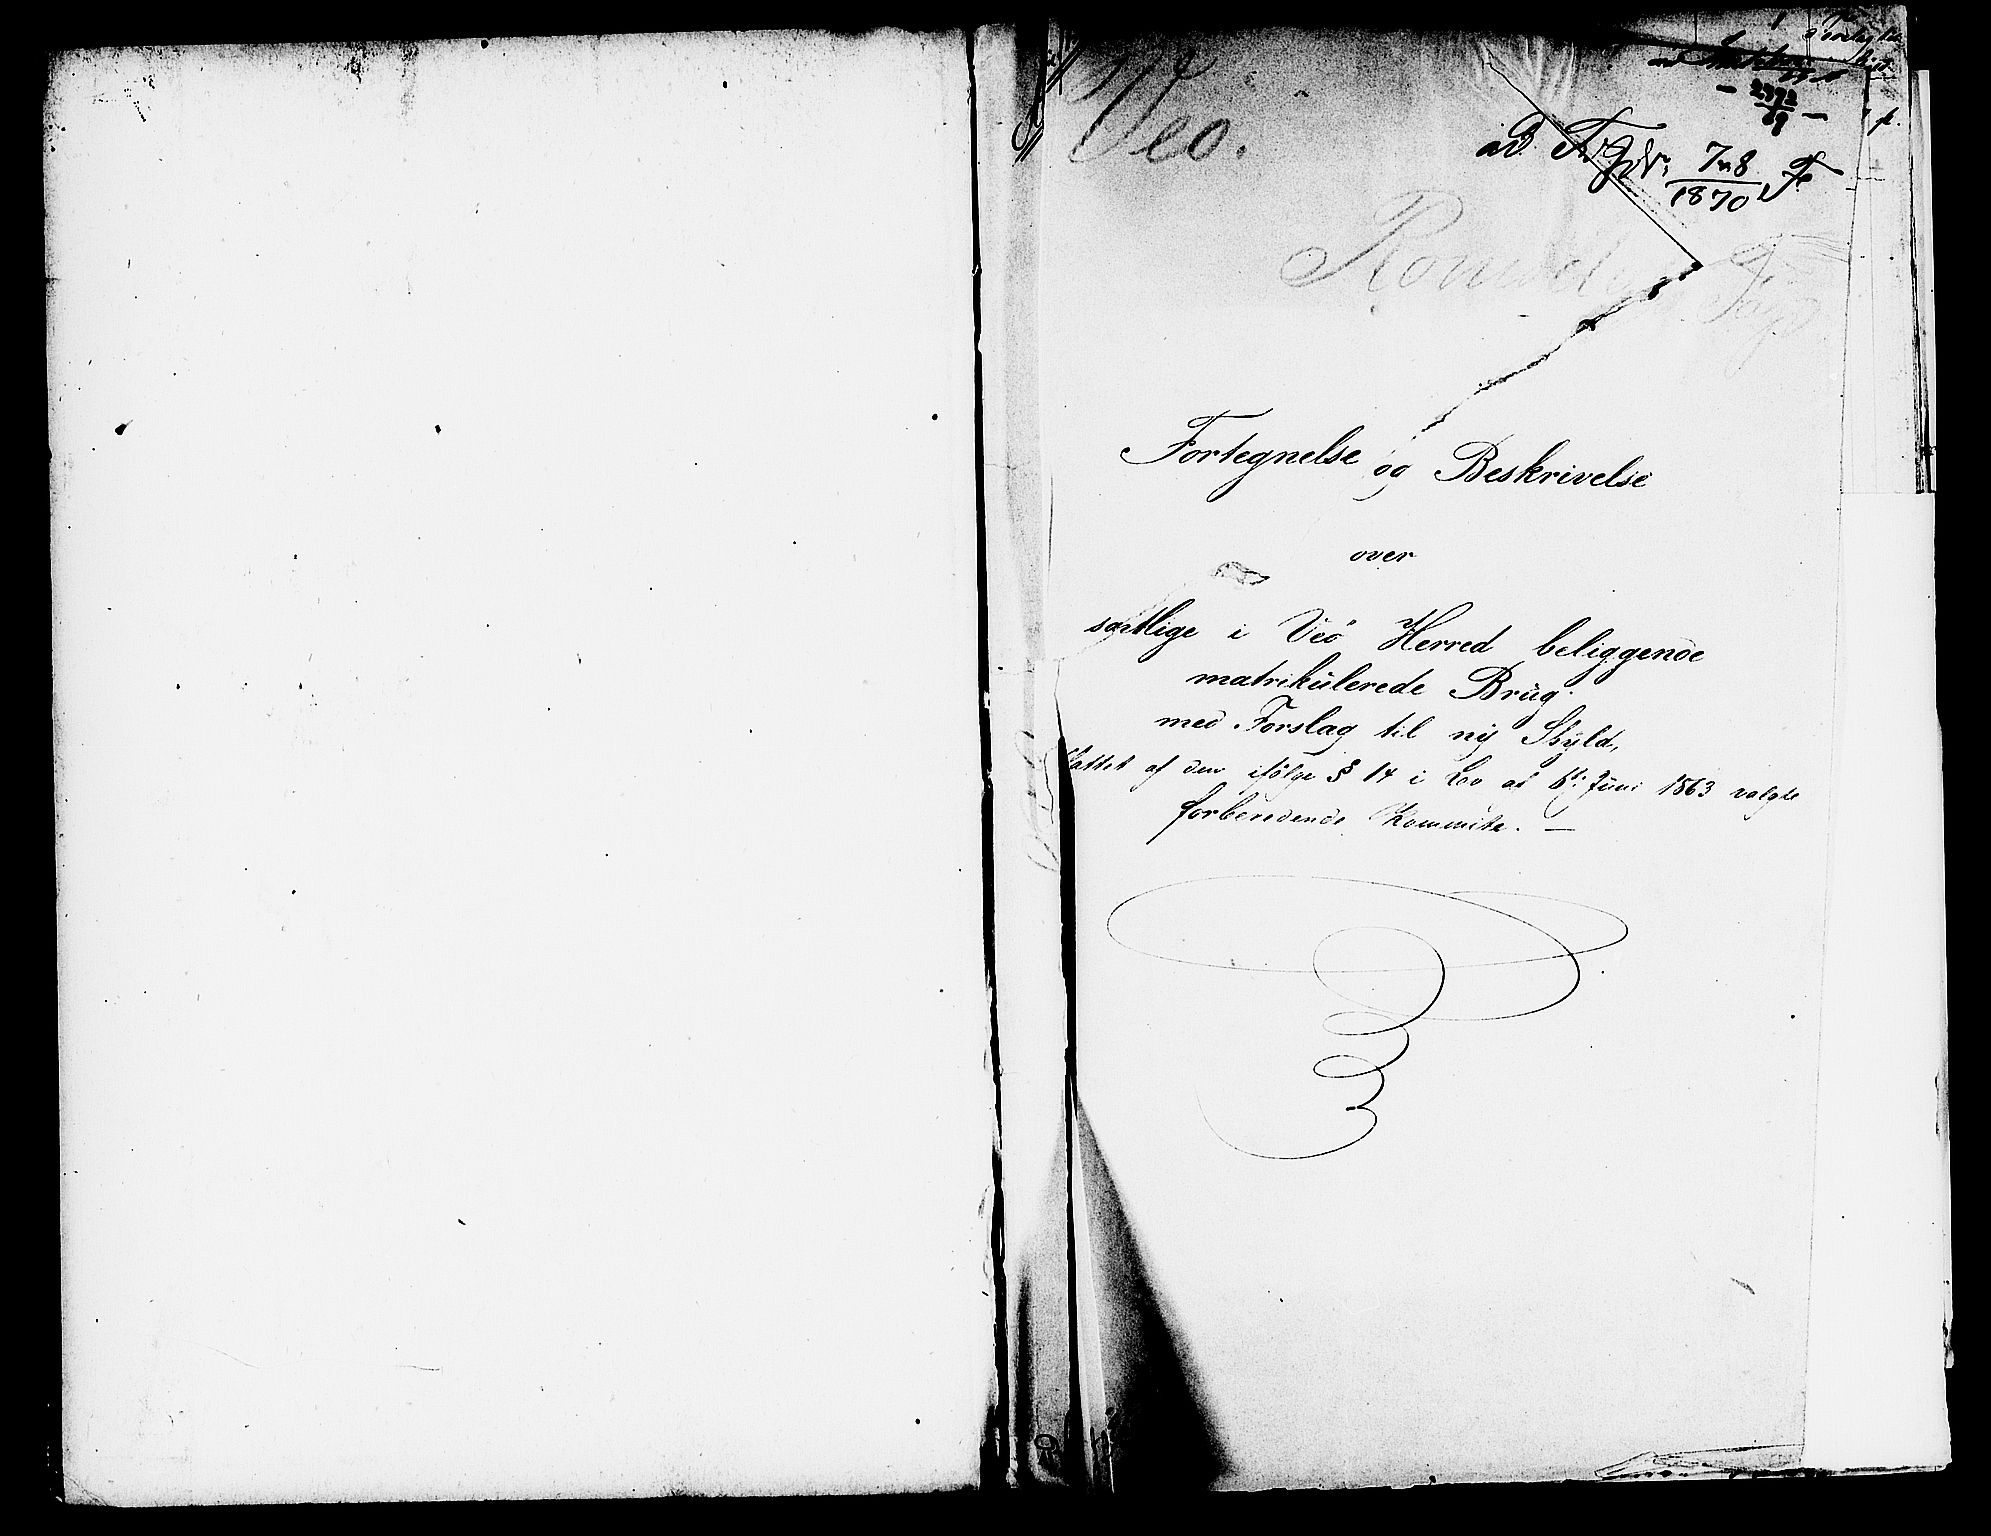 Veø.
2392
69
ad
1870
Romsdals
Fortegnelse og Beskrivelse
over
samtlige i Veø Herred beliggende
matrikulerede Brug
med Forslag til ny Skyld,
fattet af den ifølge § 14 i Lov af 6te Juni 1863 valgte
forberedende Kommite. —